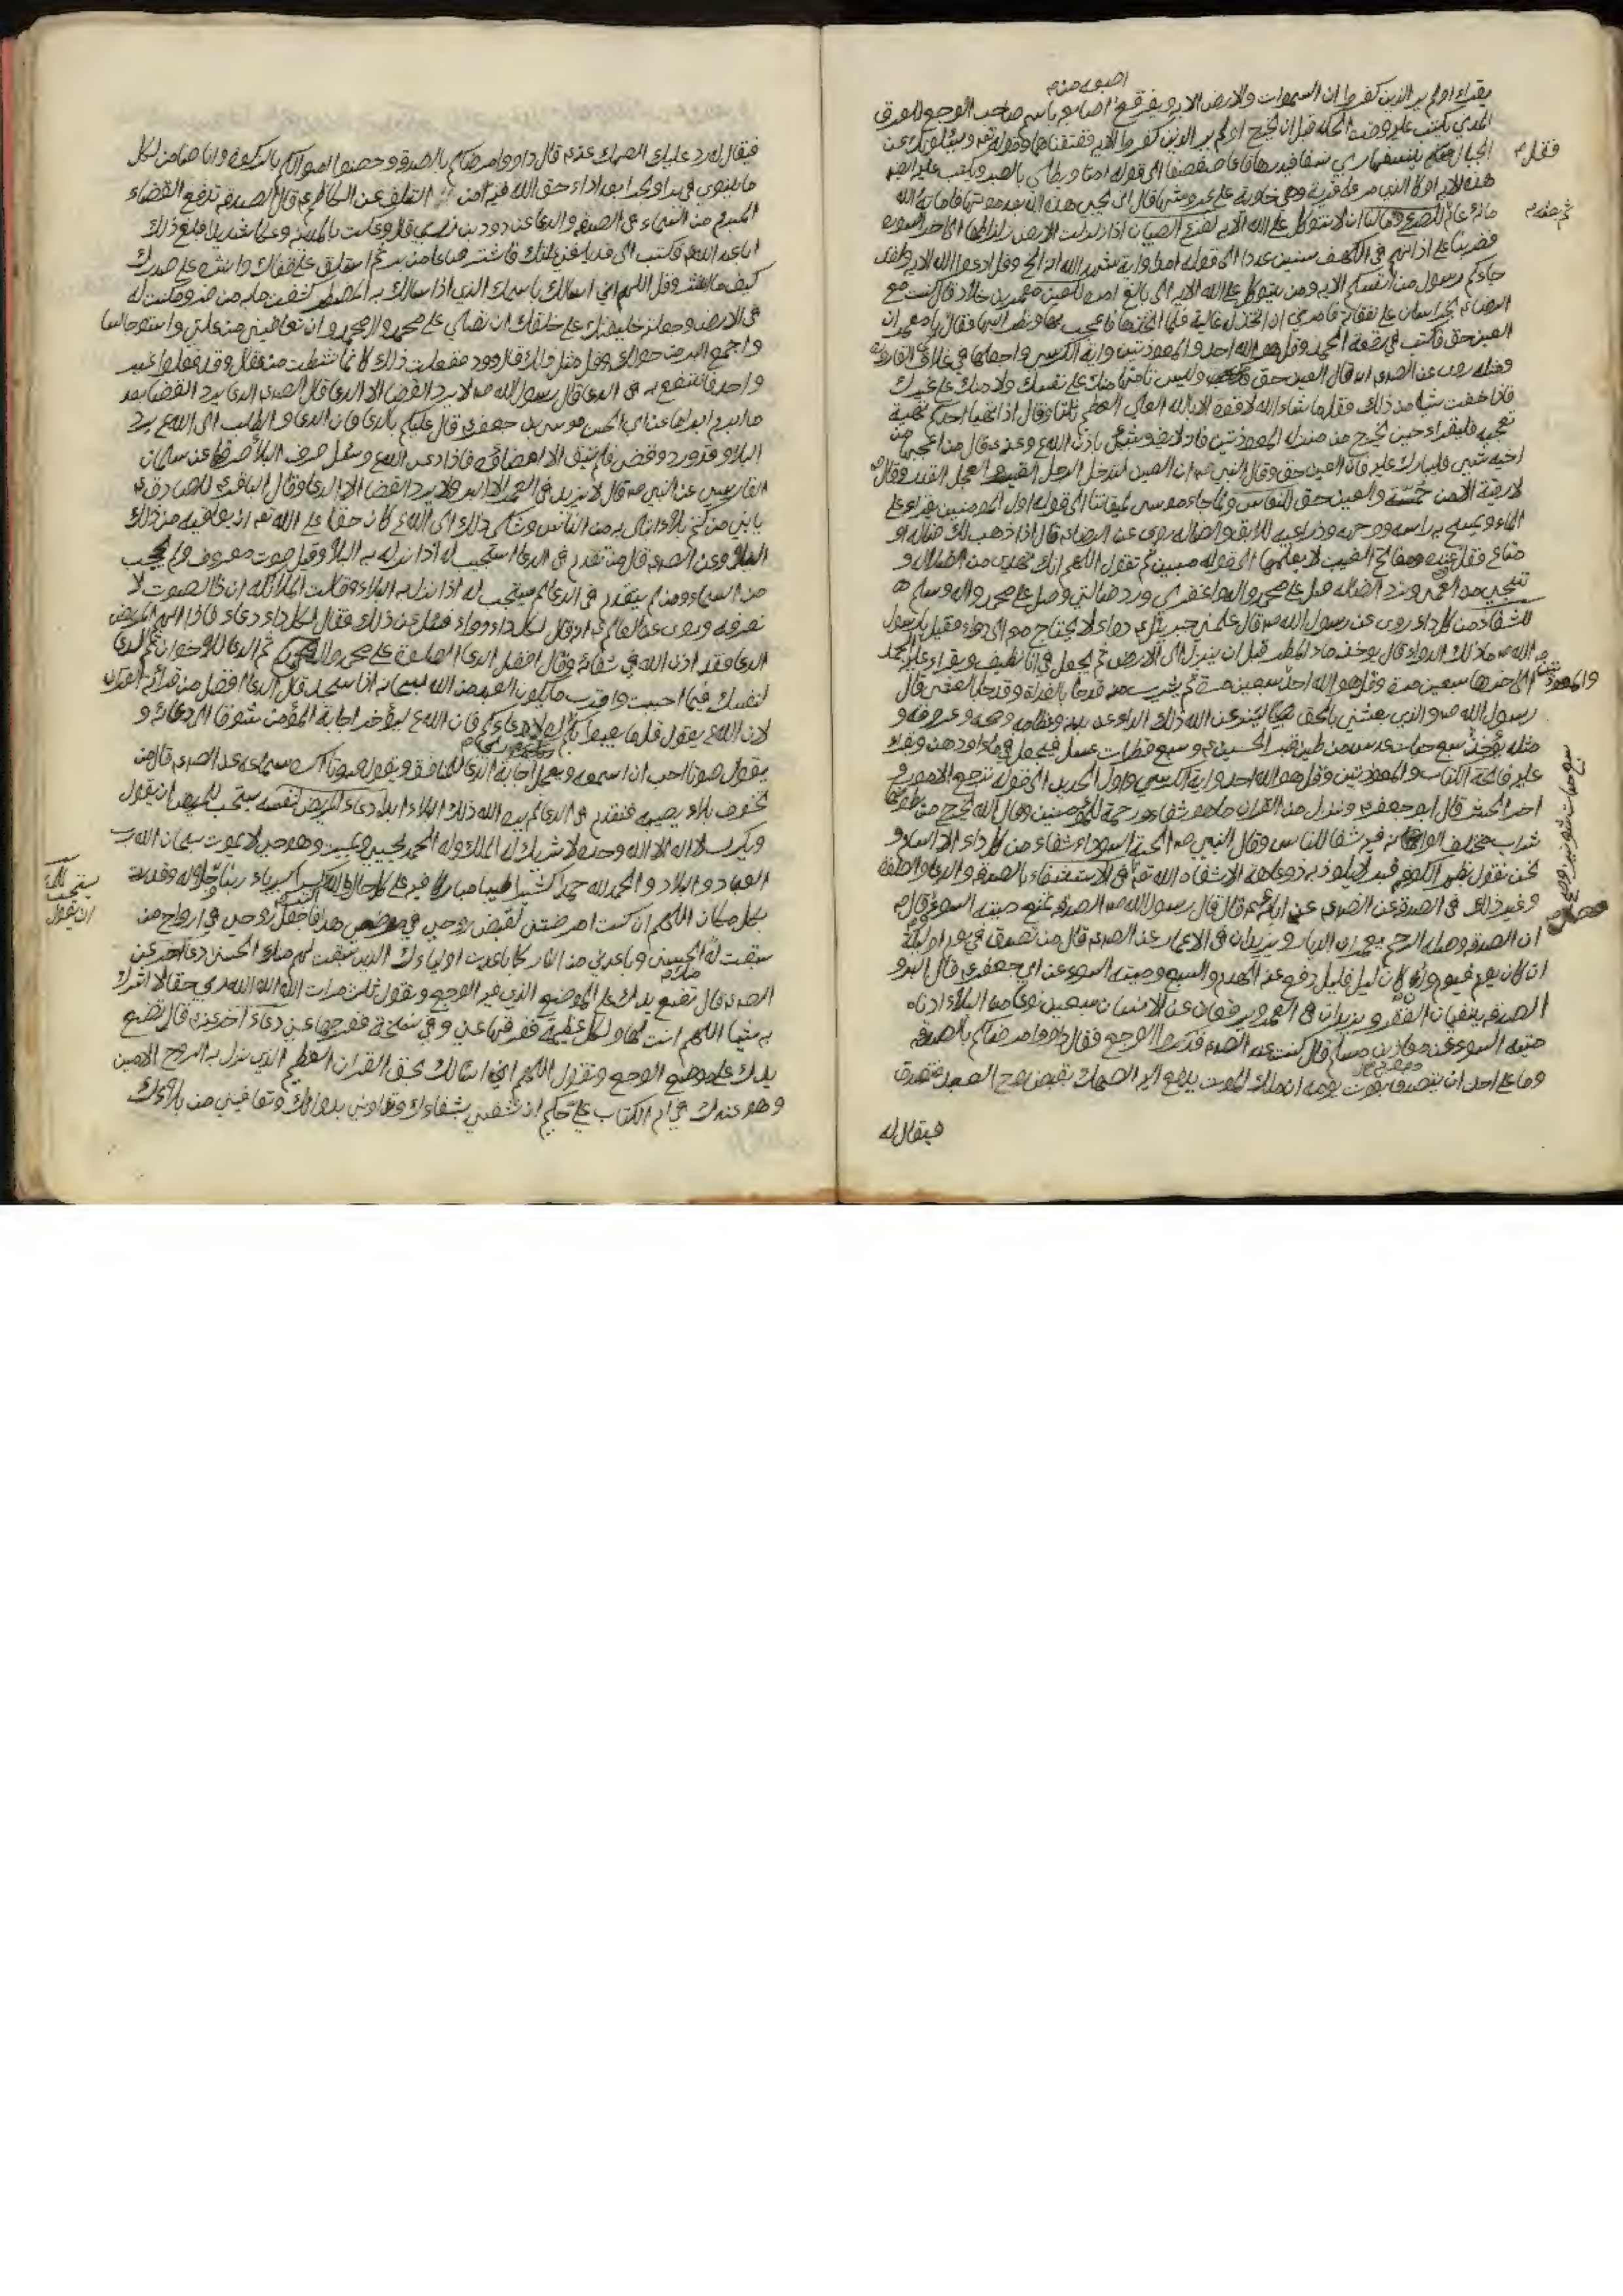 يقرأ اولم ير الذين كفروا ان السموات والارض الايه ويفرقع اصابعه باسم صاحب الوجع للعرق
المدني يكتب عليه وقت الحكه قبل ان يخرج اولم ير الذين كفروا الايه ففتقناهما وقوله تعم ويسئلونك عن
الجبال فقل ينسفها ربي نسفا فيذرها قاعا صفصفا الى قوله امتا ويطلى بالصبر ويكتب عليه ايضا
هذه الايه او كالذي مر على قرية وهي خاوية على عروشها قال انى يحيي هذه الله بعد موتها فاماته الله
مائة عام للصرع وما لنا ان لا نتوكل على الله الايه لفزع الصبيان اذا زلزلت الارض زلزالها الى اخر السورة
فضربنا على اذانهم في الكهف سنين عددا الى قوله امدا واية شهد الله انه الخ وقل ادعوا الله الايه ولقد
جاءكم رسول من انفسكم الايه ومن يتوكل على الله الايه الى بالغ امره للعين معمر بن خلاد قال كنت مع
الرضا ع بخراسان على نفقاته فامرني ان اتخذ له غالية فلما اتخذتها فاعجب بها ونظر اليها فقال يا معمر ان
العين حق فاكتب في رقعة الحمد وقل هو الله احد والمعوذتين واية الكرسي واجعلها في غلاف القارورة
ومثله روى عن الصادق انه قال العين حق وليس تأمنها منك على نفسك ولا منك على غيرك
فاذا خفت شيئا من ذلك فقل ما شاء الله لا قوة الا بالله العلي العظيم ثلثا وقال اذا تهيا احدكم تهيئة
تعجبه فليقراء حين يخرج من منزله المعوذتين فانه لا يضره شيئ باذن الله ع وعنه ع قال من اعجبه من
اخيه شيئ فليبارك عليه فان العين حق وقال النبي ص ان العين لتدخل الرجل القبر والجمل القدر وقال ص
لا رقية الا من حمة والعين حق للنعاس ولما جاء موسى لميقاتنا الى قوله اول المومنين يقراء على
الماء ويمسح به راسه ووجهه وذراعيه للابق والضاله روى عن الرضا ع قال اذا ذهب لك ضاله او
متاع فقل وعنده مفاتح الغيب لا يعلمها الى قوله مبين ثم تقول اللهم انك تهدي من الضلالة و
تنجي من العمى وترد الضاله صل على محمد واله واغفر لي ورد ضالتي وصل على محمد واله وسلم
للشفاء من كل داء روى عن رسول الله ص قال علمني جبرئيل ع دواء لا يحتاج معه الى دواء فقيل يا رسول
الله ص ما ذلك الدواء قال يوخذ ماء المطر قبل ان ينزل الى الارض ثم يجعل في اناء نظيف ويقراء عليه الحمد
الى اخرها سبعين مرة وقل هو الله احد سبعين مرة ثم يشرب منه قدحا بالغداة وقدحا بالعشي قال
رسول الله ص والذي بعثني بالحق لينزعن الله ذلك الداء من بدنه وعظامه ومخه وعروقه و
مثله يؤخذ سبع حبات عدس من طين قبر الحسين ع وسبع قطرات عسل فيجعل في ماء او دهن ويقرء
عليه فاتحة الكتاب والمعوذتين وقل هو الله احد واية الكرسي واول الحديد الى قوله ترجع الامور و
اخر الحشر قال ابو جعفر ع وننزل من القران ما هو شفاء ورحمة للمؤمنين وقال الله يخرج من بطونها
شراب مختلف الوانه فيه شفا للناس وقال النبي ص الحبة السوداء شفاء من كل داء الا السام و
نحن نقول بظهر الكوفه قبر لا يلوذ به ذو عاهة الا شفاه الله تعم في الاستشفاء بالصدقه والدعاء والصلوة
وغير ذلك في الصدقة عن الصادق عن ابائه ع قال قال رسول الله ص الصدقه تمنع ميتة السوء وقال ص
ان الصدقه وصلة الرحم يعمران الديار ويزيدان في الاعمار عن الصادق قال من تصدق في يوم او ليلة
ان كان يوم فيوم وان كان ليل فليل دفع عنه الهدم والسبع وميتة السوء عن ابي جعفر ع قال البر و
الصدقه ينفيان الفقر ويزيدان في العمر ويدفعان عن الانسان سبعين نوعا من البلاء ادناه
ميتة السوء عن معاذ بن مسلم قال كنت عند الصادق فذكروا الوجع فقال داووا مرضاكم بالصدقه
وما على احدكم ان يتصدق بقوت يومه ان ملك الموت يدفع اليه الصك بقبض روح العبد فيتصدق
فيقال له
فقل
والمعوذتين
سبع حبات شونيز
فيقال له رد عليك الصك عنه ع قال داووا مرضاكم بالصدقه وحصنوا اموالكم بالزكوة وانا ضامن لكل
ما يتوى في بر او بحر بعد اداء حق الله فيه من التلف عن الكاظم ع قال الصدقه تدفع القضاء
المبرم من السماء في الصدقه والدعا عن داود بن زربي قال وعكت بالمدينه وعكا شديدا فبلغ ذلك
ابا عبد الله ع فكتب الى قد بلغني علتك فاشتر صاعا من بر ثم استلق على قفاك وانثره على صدرك
كيف ما انتثر وقل اللهم اني اسالك باسمك الذي اذا سالك به المضطر كشفت ما به من ضر ومكنت له
في الارض وجعلته خليفتك على خلقك ان تصلي على محمد وال محمد وان تعافيني من علتي واستو جالسا
واجمع البر من حولك وقل مثل ذلك قال داود ففعلت ذلك كانما نشطت من عقال وقد فعله غير
واحد فانتفع به في الدعا قال رسول الله ص لا يرد القضا الا الدعا قال الصادق الدعا يرد القضا بعد
ما ابرم ابراما عن ابي الحسن موسى بن جعفر ع قال عليكم بالدعا فان الدعا والطلب الى الله ع يرد
البلاء وقد ورد وقضى فلم يبق الا امضاؤه فاذا دعي الله ع وسئل صرف البلاء صرفا عن سلمان
الفارسي عن النبي ص قال لا يزيد في العمر الا البر ولا يرد القضا الا الدعا وقال الباقر ع للصادق ع
يا بني من كتم بلاء ابتلى به من الناس وشكى ذلك الى الله ع كان حقا على الله تعم ان يعافيه من ذلك
البلاء وعن الصادق قال من تقدم في الدعا استجيب له اذا نزل به البلاء وقيل صوت معروف ولم يحجب
من السماء ومن لم يتقدم في الدعا لم يستجب له اذا نزل به البلاء وقالت الملائكه ان ذا الصوت لا
نعرفه وروى عن العالم ع انه قال لكل داء دواء فسئل عن ذلك فقال لكل داء دعاء فاذا الهم المريض
الدعا فقد اذن الله في شفائه وقال افضل الدعا الصلوة على محمد وال محمد ثم الدعا للاخوان ثم الدعا
لنفسك فيما احببت واقرب ما يكون العبد من الله سبحانه اذا سجد قال الدعا افضل من قرائة القران
لان الله ع يقول قل ما يعبؤا بكم ربي لولا دعاءكم فان الله ع ليؤخر اجابة المؤمن شوقا الى دعائه و
يقول صوتا احب ان اسمعه ويعجل اجابة الدعا للمنافق ويقول صوتا اكره سماعه عن الصادق قال من
تخوف بلاء يصيبه فتقدم في الدعا لم يره الله ذلك البلاء ابدا دعاء المريض لنفسه يستحب للمريض ان يقول
ويكرر لا اله الا الله وحده لا شريك له له الملك وله الحمد يحيي ويميت وهو حي لا يموت سبحان الله رب
العباد والبلاد والحمد لله حمدا كثيرا طيبا مباركا فيه على كل حال والله اكبر كبيرا كبرياء ربنا وجلاله وقدرته
بكل مكان اللهم ان كنت امرضتني لقبض روحي في مرضي هذا فاجعل روحي في ارواح من
سبقت له منك الحسنى وباعدني من النار كما باعدت اولياءك الذين سبقت لهم منك الحسنى دعاء اخر عن
الصادق قال تضع يدك على الموضع الذي فيه الوجع وتقول ثلث مرات الله الله الله ربي حقا لا اشرك
به شيئا اللهم انت لها ولكل عظيمة ففرجها عني وفي نسخة ففرجها عني دعاء اخر عنه ع قال تضع
يدك على موضع الوجع وتقول اللهم اني اسالك بحق القران العظيم الذي نزل به الروح الامين
وهو عندك في ام الكتاب علي حكيم ان تشفيني بشفاءك وتداويني بدوائك وتعافيني من بلاءك
يستحب
ان يقول